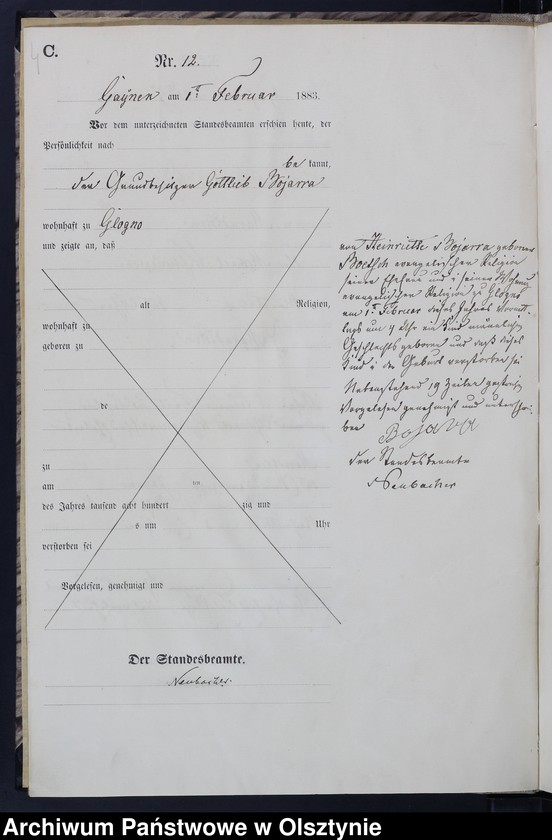 C.
Nr. 12.
Gaynen am 1ten Februar 1883.
Vor dem unterzeichneten Standesbeamten erschien heute, der
Persönlichkeit nach
be kannt,
der Grundbesitzer Gottlieb Bojarra
wohnhaft zu Glogno
und zeigte an, daß
alt Religion,
wohnhaft zu
geboren zu
de
zu
am ten
des Jahres tausend acht hundert zig und
s um Uhr
verstorben sei
Vorgelesen, genehmigt und
Der Standesbeamte.
Neubacher.
von Henriette Bojarra geborne
Boetsch evangelischen Religion
seiner Ehefrau und in seiner Wohnung
evangelischen Religion zu Glogno
am 1ten Februar dieses Jahres Vormit-
tags um 4 Uhr ein Kind männlichen
Geschlechts geboren und daß dieses
Kind in der Geburt verstorben sei
Nebenstehend 19 Zeilen gestrichen
Vorgelesen genehmigt und unterschrie-
ben
Bojarra
der Standesbeamte
Neubacher
Archiwum Państwowe w Olsztynie